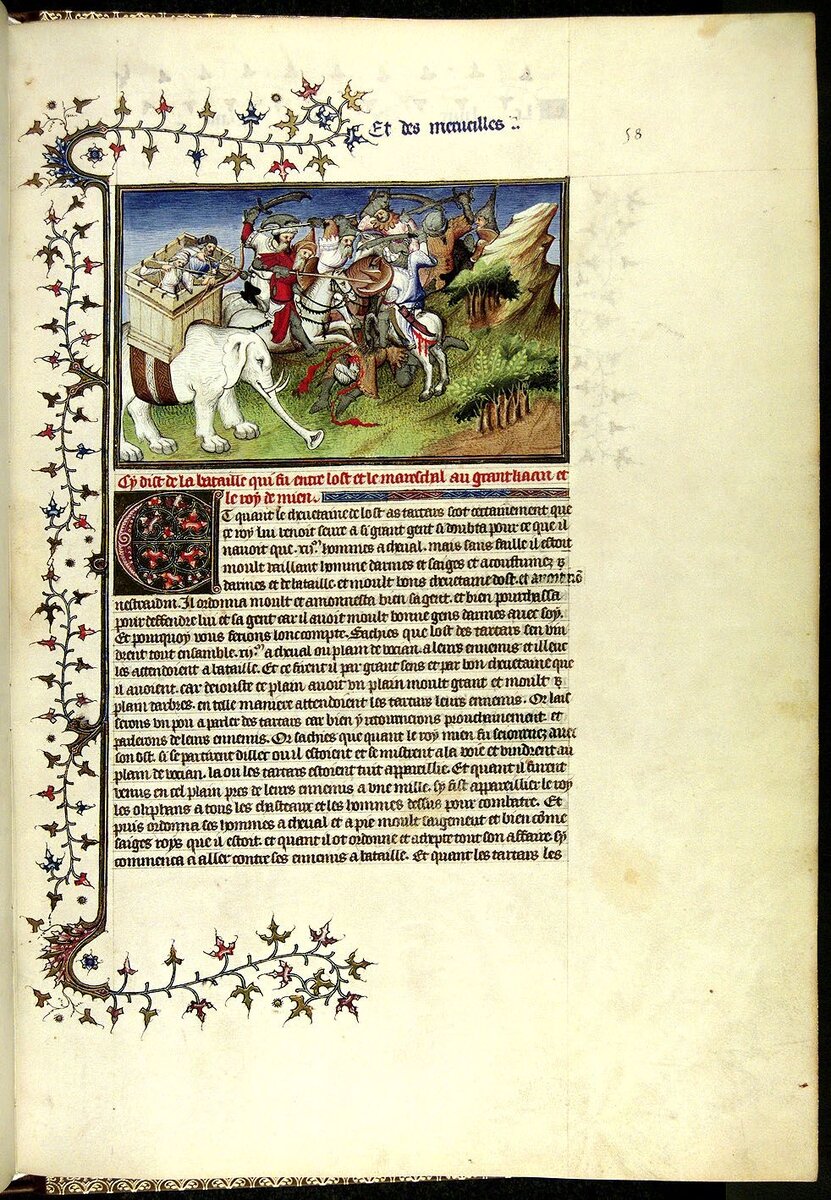 Et des merveilles
58
Cy dist de la bataille qui fu entre lost et le mareschal au grant kaan et
le roy de mien.
Et quant le chevetaine de lost as tartars scot certainement que
ce roy lui venoit seure a si grant gent si doubta pour ce que il
navoit que .xij.m hommes a cheval. mais sans faille il estoit
moult vaillant homme darmes et saiges et acoustumez
darmes et de bataille. et moult bons chevetaine dost. et
Il ordonna moult et amonnesta bien sa gent. et bien pourchassa
pour deffendre lui et sa gent car il avoit moult bonne gens darmes avec soy.
Et pourquoy vous feroins lonc compte. Sachies que lost des tartars sen vin
drent tout ensamble .xij.m a cheval ou plain de vocian. a leurs ennemis et illeuc
les attendoient a bataille. Et ce firent il par grant sens et par bon chevetaine que
il avoient. car dejouste ce plain avoit un plain moult grant et moult
plain darbres. en telle maniere attendoient les tartars leurs ennemis. Or lais
serons un pou a parler des tartars car bien y retournerons prouchainement. et
parlerons de leurs ennemis. Or sachies que quant le roy mien fu seiornez avec
son ost. si se partirent dillec ou il estoient et se mistrent a la voie et vindrent au
plain de vocian. la ou les tartars estoient tuit appareillie. Et quant il furent
venus en cel plain pres de leurs ennemis a une mille. sy fist appareillier le roy
les oliphans a tous les chasteaux et les hommes dessus pour combatre. Et
puis ordonna ses hommes a cheval et a pie moult saigement et bien come
saiges roys que il estoit. et quant il ot ordonne et tout son affaire. sy
commenca a aller contre ses ennemis a bataille. Et quant les tartars les